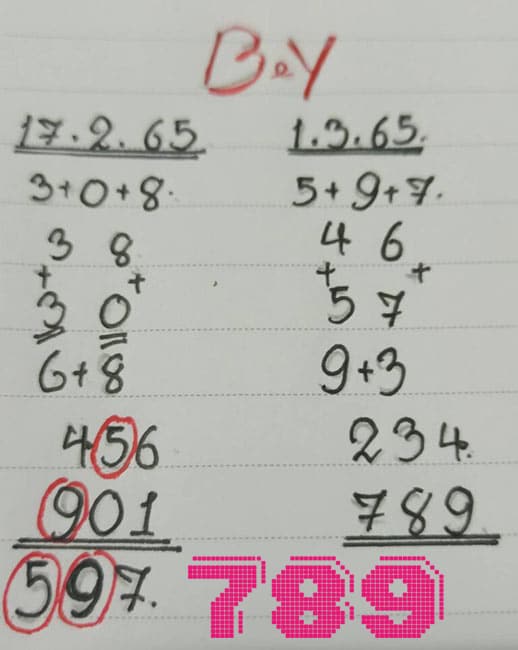 B.Y
17.2.65 1.3.65.
3+0+8. 5+9+7.
3 8 4 6
+ + + +
3 0 5 7
6+8 9+3
456 234.
901 789
597. 789